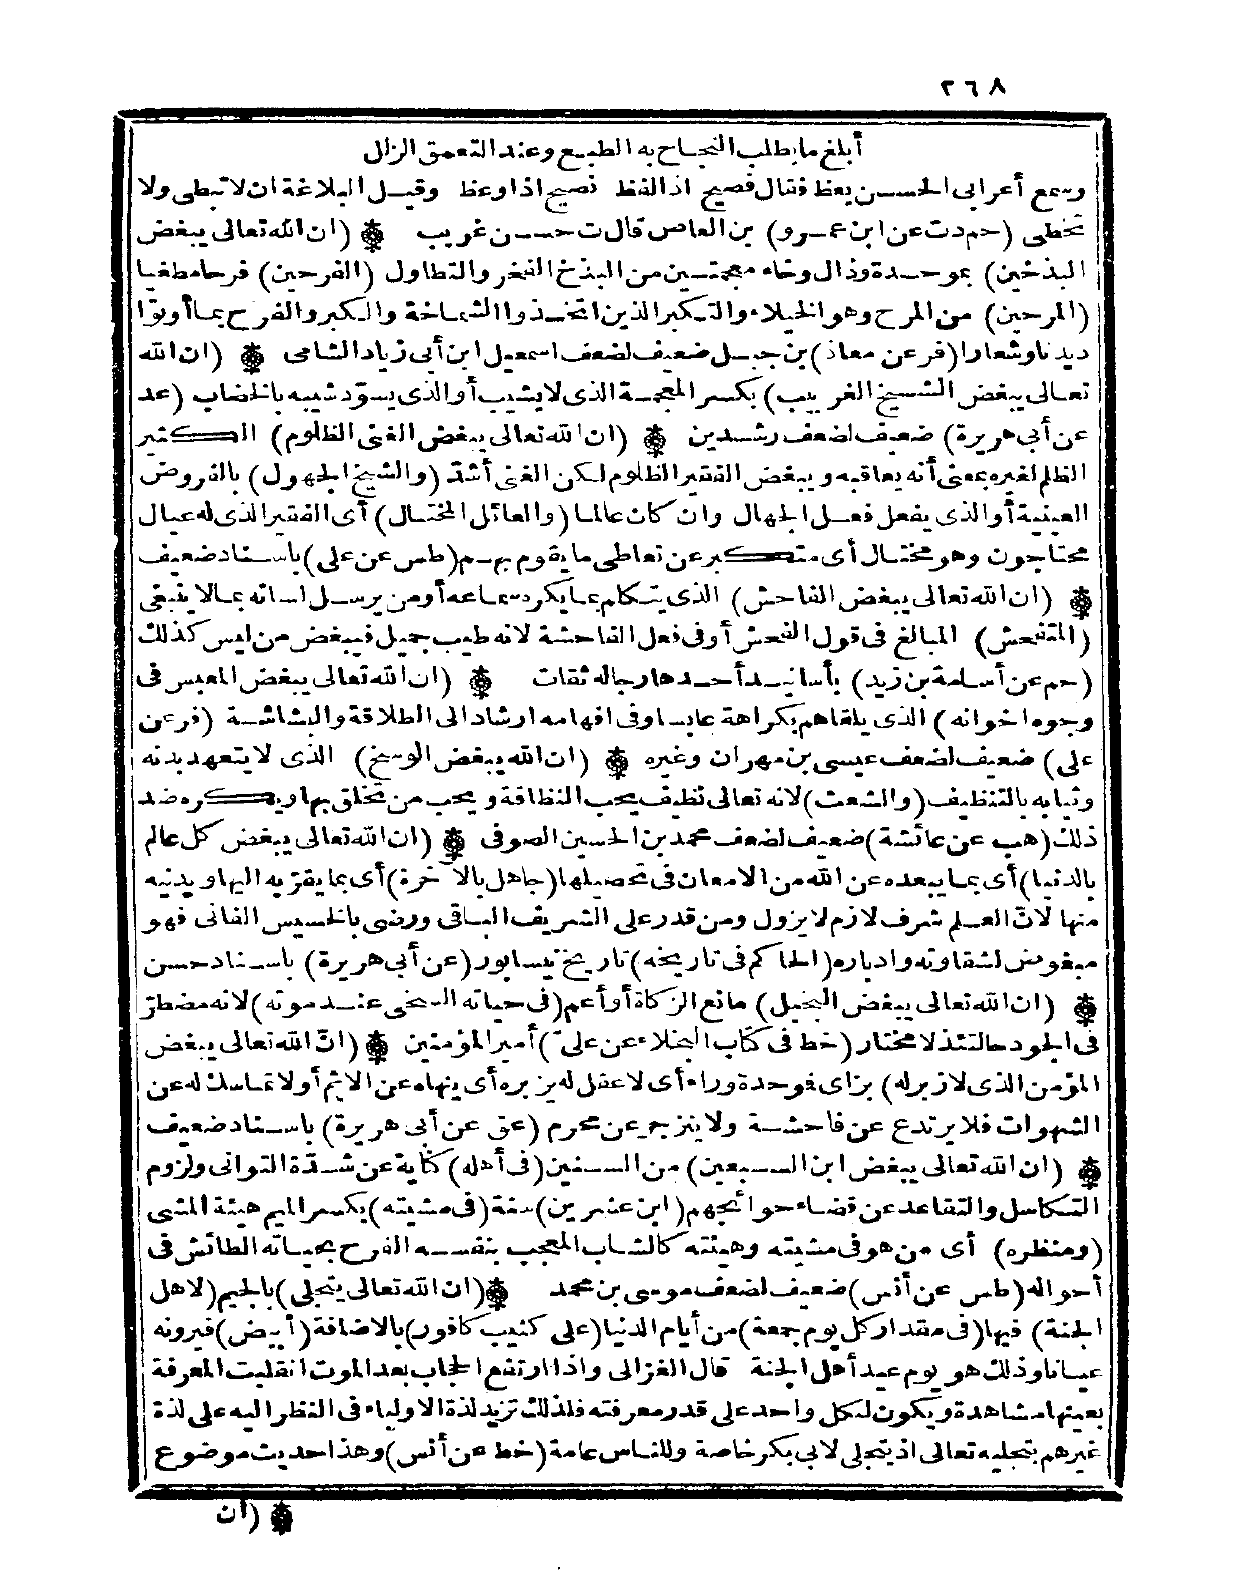 ٢٦٨
أبلغ ما يطلب النجاح به الطبع وعند التعمق الزلل
وسمع أعرابى الحسن يعظ فقال فصيح اذا لفظ نصيح اذا وعظ وقيل البلاغة ان لا تبطى ولا
تخطى (حم د ت عن ابن عمرو) بن العاص قال ت حسن غريب ❁ (ان الله تعالى يبغض
البذخين) بموحدة وذال وخاء معجمتين من البذخ الفخر والتطاول (الفرحين) فرحا مطغيا
(المرحين) من المرح وهو الخيلاء والتكبر الذين اتخذوا الشماخة والكبر والفرح بما أوتوا
ديدنا وشعارا (فر عن معاذ) بن جبل ضعيف لضعف اسمعيل ابن أبى زياد الشامى ❁ (ان الله
تعالى يبغض الشيخ الغربيب) بكسر المعجمة الذى لا يشيب أو الذى يسوّد شيبه بالخضاب (عد
عن أبى هريرة) ضعيف لضعف رشدين ❁ (ان الله تعالى يبغض الغنى الظلوم) الكثير
الظلم لغيره بمعنى أنه يعاقبه ويبغض الفقير الظلوم لكن الغنى أشدّ (والشيخ الجهول) بالفروض
العينية أو الذى يفعل فعل الجهال وان كان عالما (والعائل المختال) أى الفقير الذى له عيال
محتاجون وهو مختال أى متكبر عن تعاطى ما يقوم بهم (طس عن على) باسناد ضعيف
❁ (ان الله تعالى يبغض الفاحش) الذى يتكلم بما يكره سماعه أو من يرسل لسانه بما لا ينبغى
(المتفحش) المبالغ فى قول الفحش أو فى فعل الفاحشة لانه طيب جميل فيبغض من ليس كذلك
(حم عن أسامة بن زيد) بأسانيد أحدها رجاله ثقات ❁ (ان الله تعالى يبغض المعبس فى
وجوه اخوانه) الذى يلقاهم بكراهة عابسا وفى افهامه ارشاد الى الطلاقة والبشاشة (فر عن
على) ضعيف لضعف عيسى بن مهران وغيره ❁ (ان الله يبغض الوسخ) الذى لا يتعهد بدنه
وثيابه بالتنظيف (والشعث) لانه تعالى نظيف يحب النظافة ويحب من تخلق بها ويكره ضد
ذلك (هب عن عائشة) ضعيف لضعف محمد بن الحسين الصوفى ❁ (ان الله تعالى يبغض كل عالم
بالدنيا) أى بما يبعده عن الله من الامعان فى تحصيلها (جاهل بالآخرة) أى بما يقرّبه اليها ويدنيه
منها لانّ العلم شرف لازم لا يزول ومن قدر على الشريف الباقى ورضى بالخسيس الفانى فهو
مبغوض لشقاوته وادباره (الحاكم فى تاريخه) تاريخ نيسابور (عن أبى هريرة) باسناد حسن
❁ (ان الله تعالى يبغض البخيل) مانع الزكاة أو أعم (فى حياته السخى عند موته) لانه مضطرّ
فى الجود حالتئذ لا مختار (خط فى كتاب البخلاء عن علىّ) أمير المؤمنين ❁ (انّ الله تعالى يبغض
المؤمن الذى لا زبر له) بزاى فموحدة وراء أى لا عقل له يزبره أى ينهاه عن الاثم أو لا تماسك له عن
الشهوات فلا يرتدع عن فاحشة ولا ينزجر عن محرم (عق عن أبى هريرة) باسناد ضعيف
❁ (ان الله تعالى يبغض ابن السبعين) من السنين (فى أهله) كناية عن شدّة التوانى ولزوم
التكاسل والتقاعد عن قضاء حوائجهم (ابن عشرين) سنة (فى مشيته) بكسر الميم هيئة المشى
(ومنظره) أى من هو فى مشيته وهيئته كالشاب المعجب بنفسه الفرح بحياته الطائش فى
أحواله (طس عن أنس) ضعيف لضعف موسى بن محمد ❁ (ان الله تعالى يتجلى) بالجيم (لاهل
الجنة) فيها (فى مقدار كل يوم جمعة) من أيام الدنيا (على كثيب كافور) بالاضافة (أبيض) فيرونه
عيانا وذلك هو يوم عيد أهل الجنة قال الغزالى واذا ارتفع الحجاب بعد الموت انقلبت المعرفة
بعينها مشاهدة ويكون لكل واحد على قدر معرفته فلذلك تزيد لذة الاولياء فى النظر اليه على لذة
غيرهم بتجليه تعالى اذ يتجلى لابى بكر خاصة وللناس عامة (خط عن أنس) وهذا حديث موضوع
❁ (ان